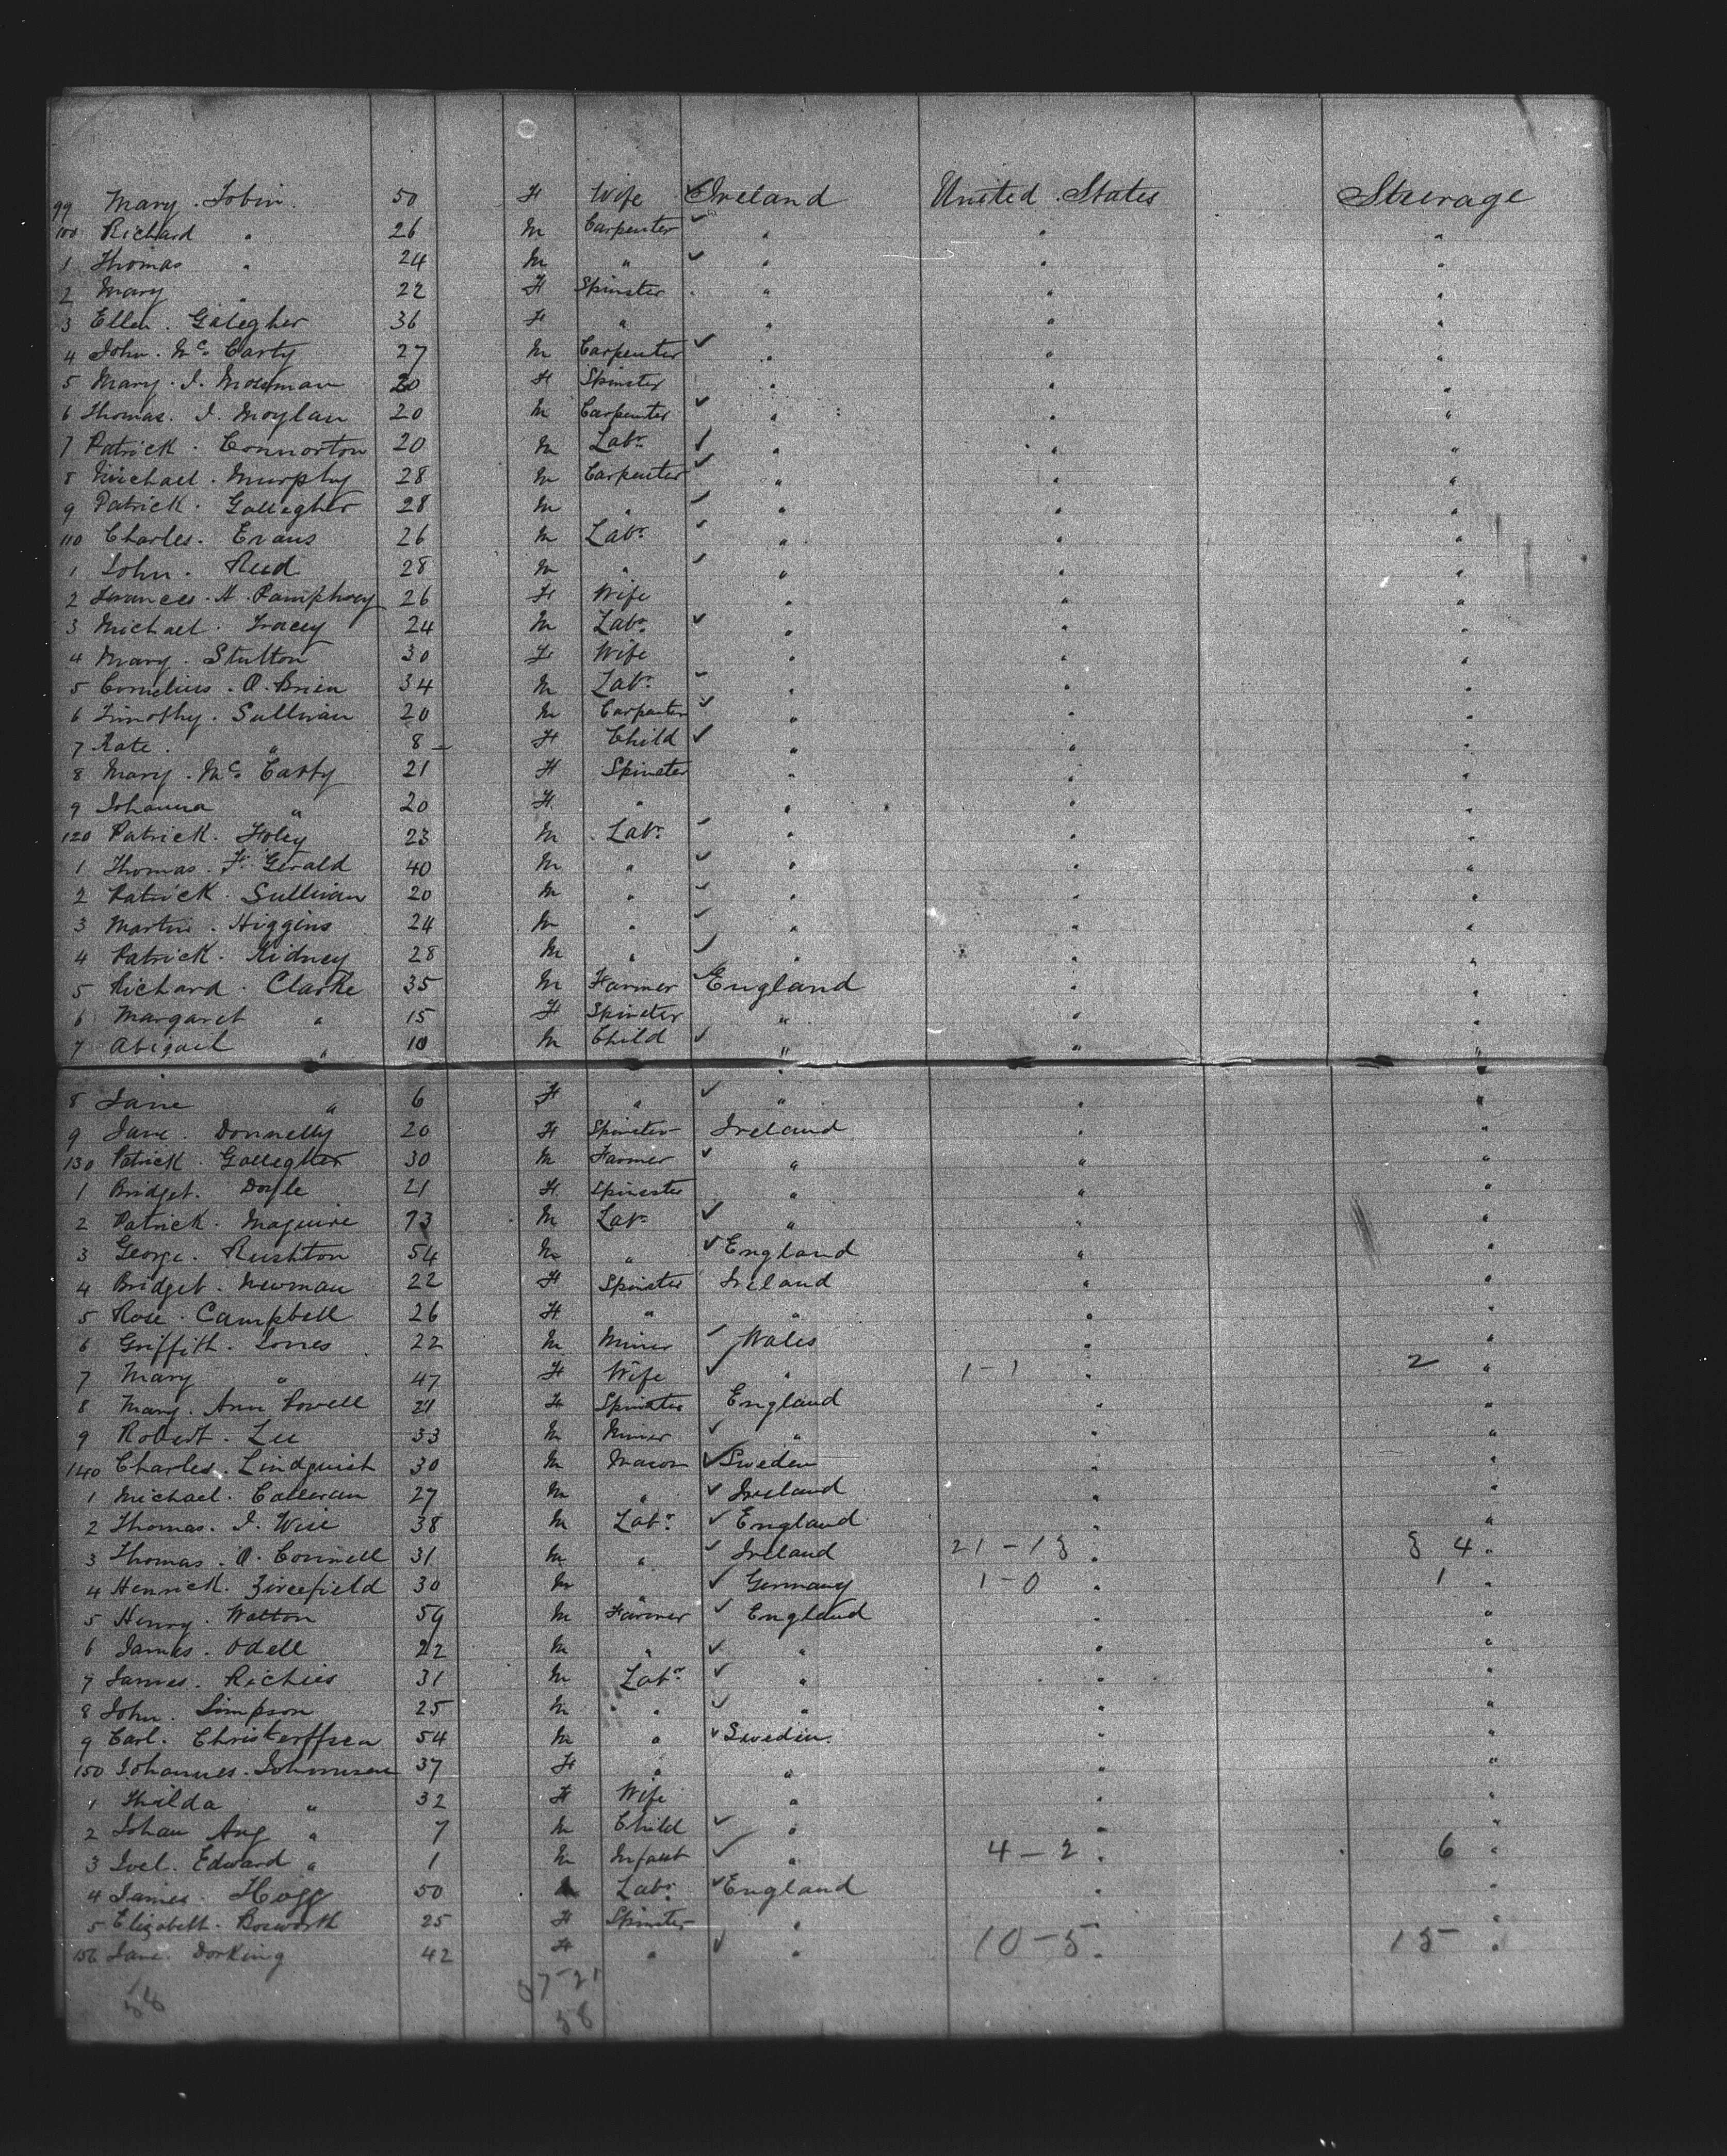 99 Mary . Tobin . 50 F Wife Ireland United States Steerage
100 Richard " 26 M Carpenter " " "
1 Thomas " 24 M " " " "
2 Mary " 22 F Spinster " " "
3 Ellen . Galegher 36 F " " " "
4 John . Mc Carty 27 M Carpenter " " "
5 Mary . J. Mossman 20 F Spinster " " "
6 Thomas . J. Moylan 20 M Carpenter " " "
7 Patrick . Connorton 20 M Labr " " "
8 Michael . Murphy 28 M Carpenter " " "
9 Patrick . Gallegher 28 M " " " "
110 Charles . Evans 26 M Labr " " "
1 John . Reed 28 M " " " "
2 Frances . A . Pamphrey 26 F Wife " " "
3 Michael . Tracey 24 M Labr " " "
4 Mary . Stutton 30 F Wife " " "
5 Cornelius . O . Brien 34 M Labr " " "
6 Timothy . Sullivan 20 M Carpenter " " "
7 Kate . " 8 F Child " " "
8 Mary . Mc Carty 21 F Spinster " " "
9 Johanna " 20 F " " " "
120 Patrick . Foley 23 M Labr " " "
1 Thomas . F. Gerald 40 M " " " "
2 Patrick . Sullivan 20 M " " " "
3 Martin . Higgins 24 M " " " "
4 Patrick . Kidney 28 M " " " "
5 Richard . Clarke 35 M Farmer England " "
6 Margaret " 15 F Spinster " " "
7 Abigail " 10 M Child " " "
8 Jane " 6 F " " " "
9 Jane . Donnelly 20 F Spinster Ireland " "
130 Patrick . Gallegher 30 M Farmer " " "
1 Bridget . Doyle 21 F Spinster " " "
2 Patrick . Maguire 73 M Labr " " "
3 George . Rushton 54 M " England " "
4 Bridget . Newman 22 F Spinster Ireland " "
5 Rose . Campbell 26 F " " " "
6 Griffith . Jones 22 M Miner Wales " "
7 Mary " 47 F Wife " 1-1 " 2 "
8 Mary . Ann Lovell 21 F Spinster England " "
9 Robert . Lee 33 M Miner " " "
140 Charles . Lindquist 30 M Mason Sweden " "
1 Michael . Calleran 27 M " Ireland " "
2 Thomas . J. Wise 38 M Labr England " "
3 Thomas . O . Connell 31 M " Ireland 21-13 " 34 "
4 Henrick . 30 M " Germany 1-0 " 1 "
5 Henry . Walton 59 M Farmer England " "
6 James . Odell 22 M " " " "
7 James . Richies 31 M Labr " " "
8 John . Simpson 25 M " " " "
9 Carl . Christerffsen 54 M " Sweden . " "
150 Johannes . Johannsen 37 F " " " "
1 Hilda " 32 F Wife " " "
2 Johan Aug " 7 M Child " " "
3 Joel . Edward " 1 M Infant " 4-2 " 6 "
4 James . Hogg 50 Labr England " "
5 Elizabeth . Bosworth 25 F Spinster " " "
156 Jane . Dorking 42 F " " 10-5 " 15 "
58 37-21
58